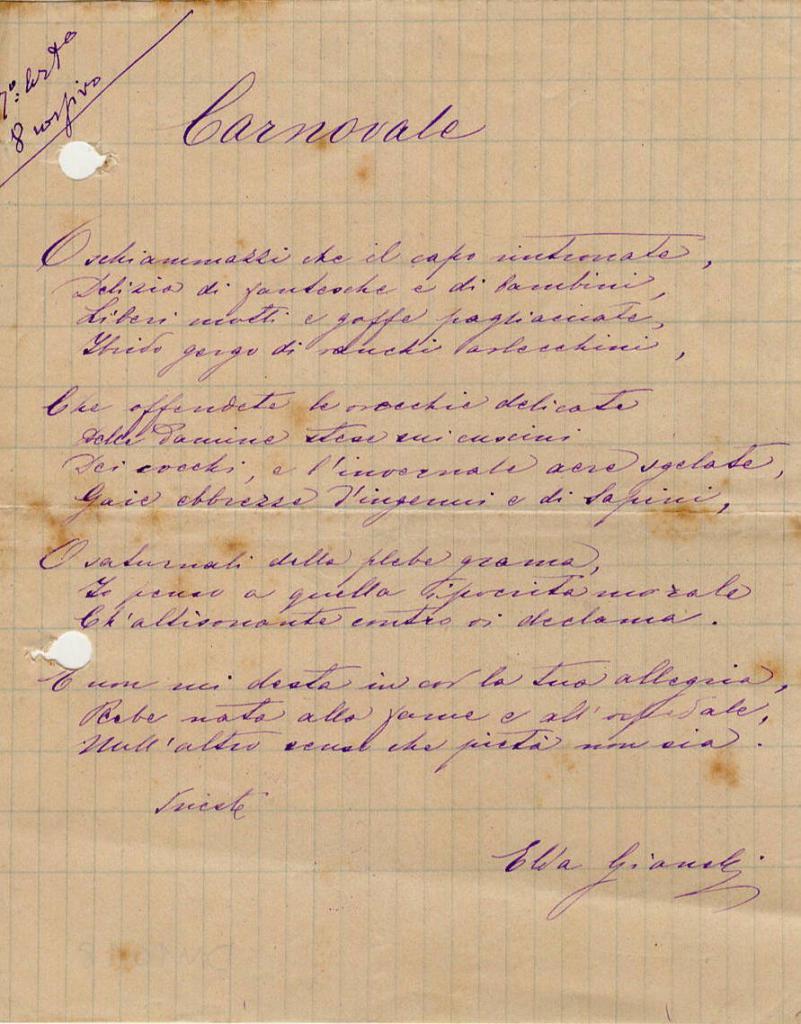 7º: Certo
8 corsivo
Carnovale
O schiammazzi che il capo rintronate,
Delizia di fantesche e di bambini,
Liberi motti e goffe pagliacciate,
Ibrido gergo di rauchi arlecchini,
Che offendete le orecchie delicate
Delle Damine stese sui cuscini
Dei cocchi, e l'invernale aere sgelate,
Gaie ebbrezze d'ingenui e di lapini,
O saturnali della plebe grama,
Io penso a quella ipocrita morale
Ch'altisonante contro vi declama.
E non mi desta in cor la tua allegria,
Plebe nata alla fame e all'ospedale,
Null'altro senso che pietà non sia.
Trieste
Elda Gianelli